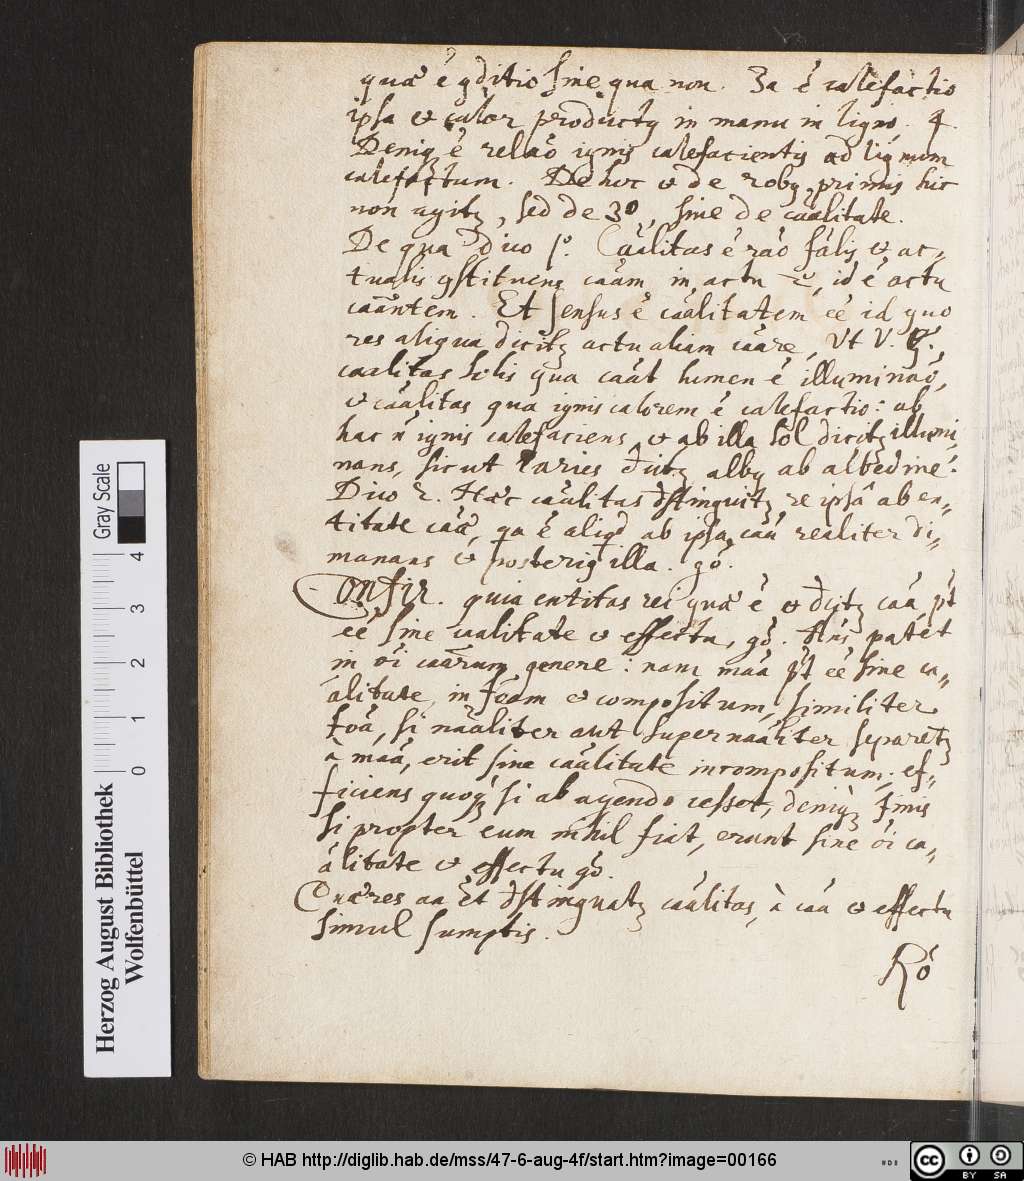 quæ ē ꝯditio sine qua non. 3a ē calefactio
ipsa et calor productꝯ in manu in ligno. 4.
Deniqꝫ ē relaō ignis calefacientis ad lignum
calefactum. De hoc et de primis hic
non agitꝫ, sed de 3º, sine de caālitate.
De qua dico 1º. Caālitas ē raō fālis et ac-
tualis ꝯstituens caām in actu 2º, id ē actu
caāntem. Et sensus ē caālitatem eē id quo
res aliqua dicitꝫ actu aliam caāre, Vt V. G.
caalitas solis qua caāt lumen ē illuminaō,
et caālitas qua ignis calorem ē calefactio: ab
hac n̄ ignis calefaciens et ab illa sol dicitꝫ illumi-
nans, sicut Paries dicitꝫ albꝯ ab albedine.
Dico 2. Hæc caālitas distinguitꝫ re ipsâ ab en-
titate caæ, qa ē aliqd ab ipsa caā realiter di-
manans et posteriꝯ illa. gō.
Confir. quia entitas rei quæ ē et dicitꝫ caā, pt
eē sine caalitate et effectu, gō. Ans patet
in oi caārum genere: nam maā pt eē sine ca-
ālitate in foām et compositum, similiter
foā, si naāliter aut supernaāliter separetꝫ
à maā, erit sine caālitate in compositum; ef-
ficiens quoqꝫ si ab agendo cesset, deniqꝫ finis
si propter eum nihil fiat, erunt sine oi ca-
ālitate et effectu gō.
Quæres an Et distinguatꝫ caālitas, à caā et effectu
simul sumptis.
Rō
Gray Scale
4
3
2
1
0
Herzog August Bibliothek
Wolfenbüttel
© HAB http://diglib.hab.de/mss/47-6-aug-4f/start.htm?image=00166
cc BY SA